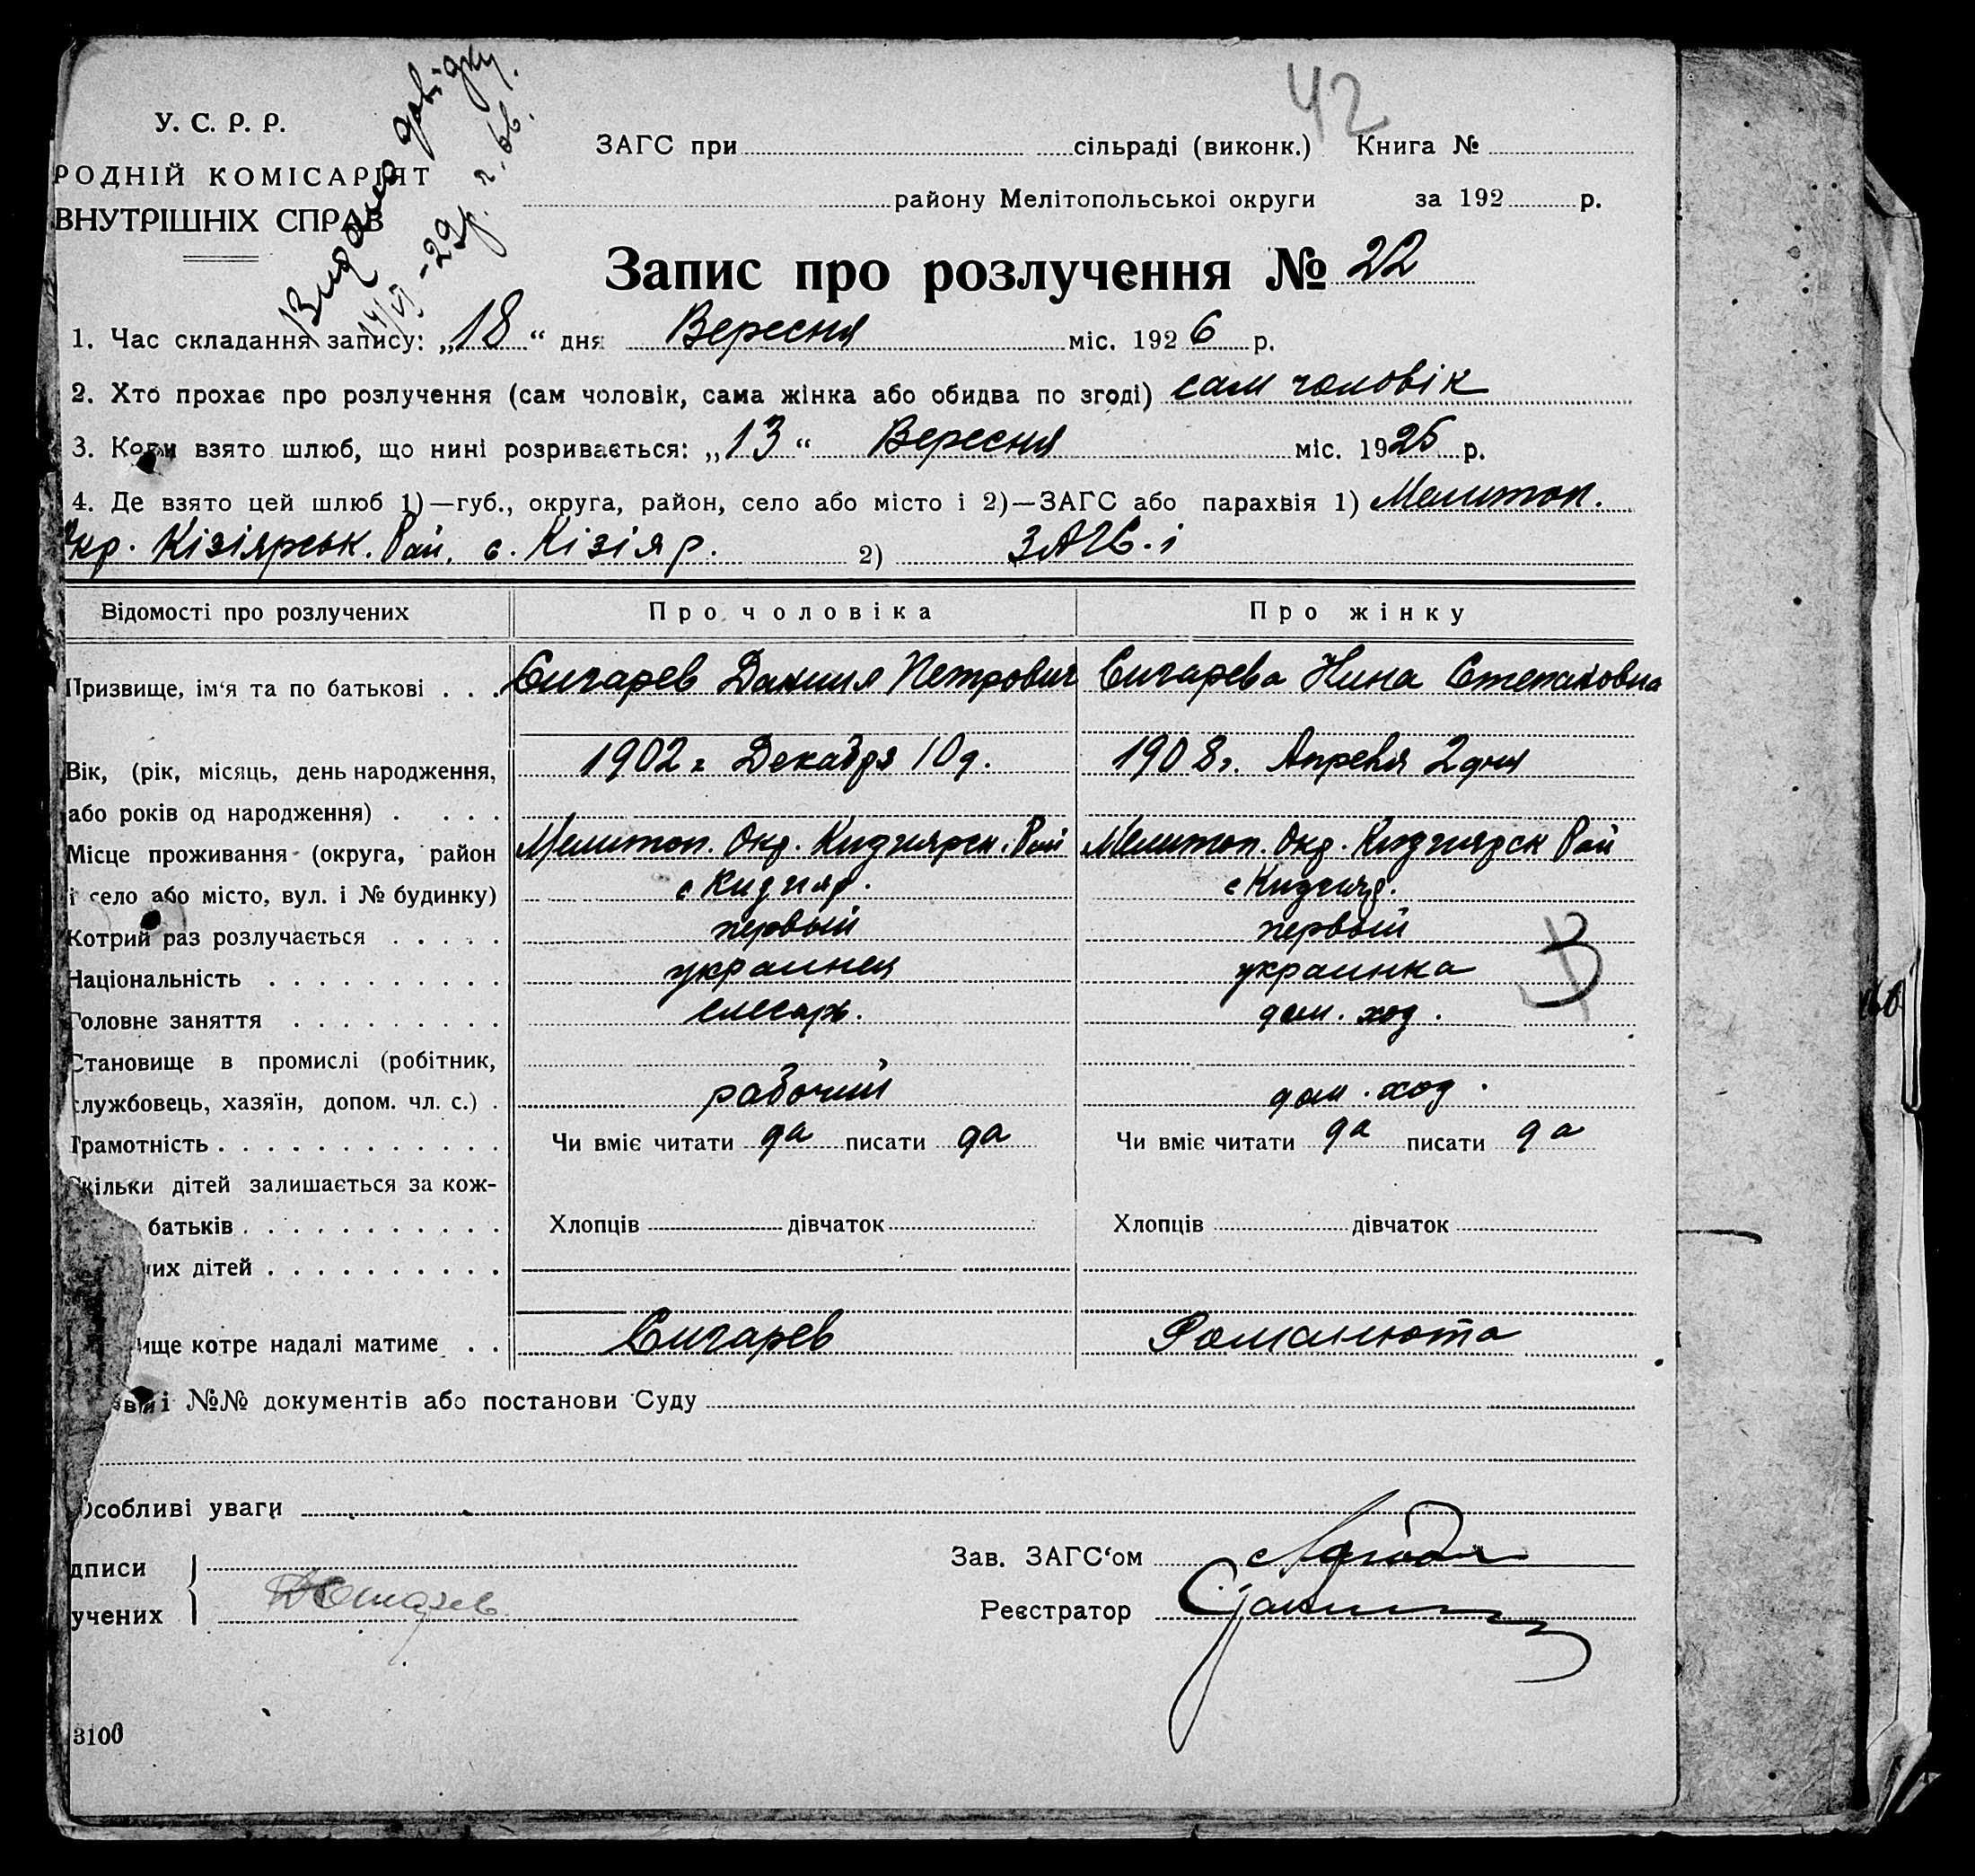 42
Видано довідку.
14/VI -29р.
У. С. Р. Р.
РОДНІЙ КОМІСАРІЯТ
ВНУТРІШНІХ СПРАВ
ЗАГС при сільраді (виконк.) Книга №
району Мелітопольської округи за 192 р.
Запис про розлучення № 22
1. Час складання запису: „18“ дня Вересня міс. 1926 р.
2. Хто прохає про розлучення (сам чоловік, сама жінка або обидва по згоді) сам чоловік
3. Коли взято шлюб, що нині розривається: „13“ Вересня міс. 1925 р.
4. Де взято цей шлюб 1)—губ., округа, район, село або місто і 2)—ЗАГС або парахвія 1) Мелитоп.
Окр. Кізіярськ. Рай. с. Кізіяр. 2) ЗАГС.і
Відомості про розлучених Про чоловіка Про жінку
Призвище, ім‘я та по батькові . . . Сигарев Данил Петрович Сигарева Нина Степановна
Вік, (рік, місяць, день народження, 1902 г Декабря 10 д. 1908 г. Апреля 2 дня
або років од народження) . . . . .
Місце проживання (округа, район Мелитоп. Окр. Кизиярск. Рай Мелитоп. Окр. Кизиярск Рай
і село або місто, вул. і № будинку) с Кизияр. с Кизияр.
Котрий раз розлучається . . . . . первый первый
Національність . . . . . . . . . . украинец украинка
Головне заняття . . . . . . . . . слесарь. дом. хоз.
Становище в промислі (робітник,
службовець, хазяїн, допом. чл. с.) . рабочий дом. хоз.
Грамотність . . . . . . . . . . . . Чи вміє читати да писати да Чи вміє читати да писати да
Скільки дітей залишається за кож-
батьків . . . . . . . . . . . Хлопців дівчаток Хлопців дівчаток
них дітей . . . . . . . . . .
ище котре надалі матиме . . Сигарев Романюта
ви і №№ документів або постанови Суду
Особливі уваги
дписи Зав. ЗАГС‘ом
учених ДСигарев Реєстратор
3100